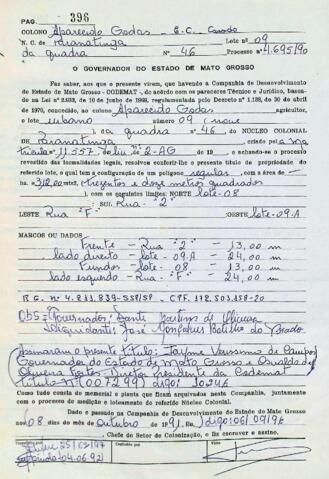 PAG. 396
COLONO Aparecido Godas - E.C. Casado
N. C. de Paranatinga Lote nº 09
da quadra nº 46 Processo nº 4.695/90
O GOVERNADOR DO ESTADO DE MATO GROSSO
Faz saber, aos que o presente virem, que havendo a Companhia de Desenvolvimento
do Estado de Mato Grosso - CODEMAT -, de acôrdo com os pareceres Técnico e Jurídico, baseado
na Lei nº 2.893, de 10 de junho de 1969, regulamentada pelo Decreto nº 1.138, de 30 de abril
de 1970, concedido, ao colono Aparecido Godas agricultor,
o lote urbano número 09 (nove
) da quadra nº 46 do NÚCLEO COLONIAL
de Paranatinga criado pela Ma
tricula nº 11.557 do liv. 2-AG de 19 , e achando-se o processo
revestido das formalidades legais, resolveu conferir-lhe o presente título de propriedade
do referido lote, o qual tem a configuração de um polígono regular, com a área de
m² 312,00 mts. trezentos e doze metros quadrados
, com os seguintes limites: NORTE lote-08
; SUL Rua "2"
LESTE Rua "F" OESTE lote-09.A
MARCOS OU DADOS
Frente - Rua "2" - 13,00 m
lado direito - lote-09.A - 24,00 m
Fundos - lote-08 - 13,00 m
lado esquerdo - Rua "F" - 24,00 m
R.G. nº 4.211.839-SSP/SP - CPF. 112.503.158-20
OBS = Governador: Dante Martins de Oliveira
Liquidante: José Gonçalves Botelho do Prado
Assinaram o presente título: Jayme Verissimo de Campos
Governador do Estado de Mato Grosso e Osvaldo de
Oliveira Fortes - Diretor Presidente da Codemat
título nº (007299)
Como tudo consta do memorial e planta que ficam arquivados nesta Companhia, juntamente
com o processo de medição e loteamento do referido Núcleo Colonial.
Dado e passado na Companhia de Desenvolvimento do Estado de Mato Grosso
aos 08 dias do mês de Outubro de 1991. Eu, digo: 06/09/96
, Chefe do Setor de Colonização, o fiz escrever e assino.